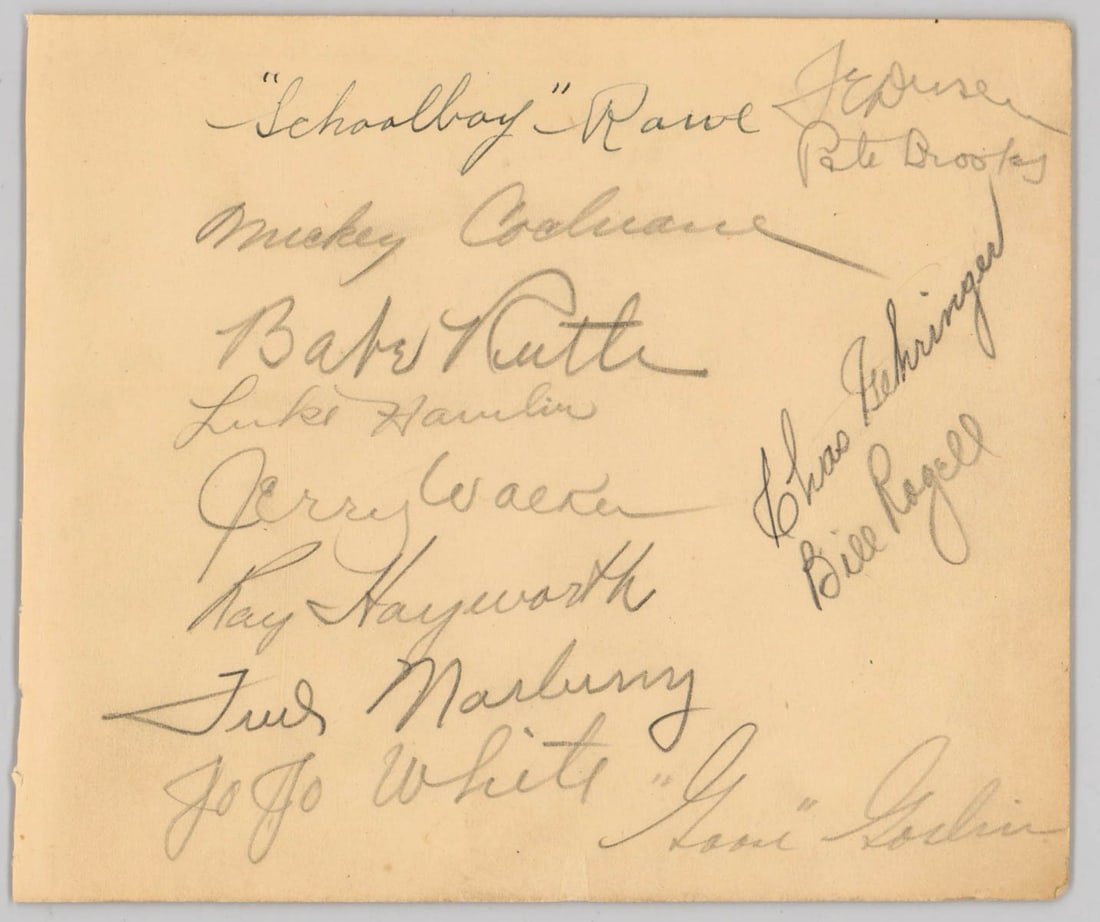 "Schoolboy" Rowe
Pete
Mickey Cochrane
Babe Ruth
Luke Hamlin
Jerry Walker
Ray Hayworth
Fred Marberry
JoJo White
"Goose" Goslin
Chas Gehringer
Bill Rogell